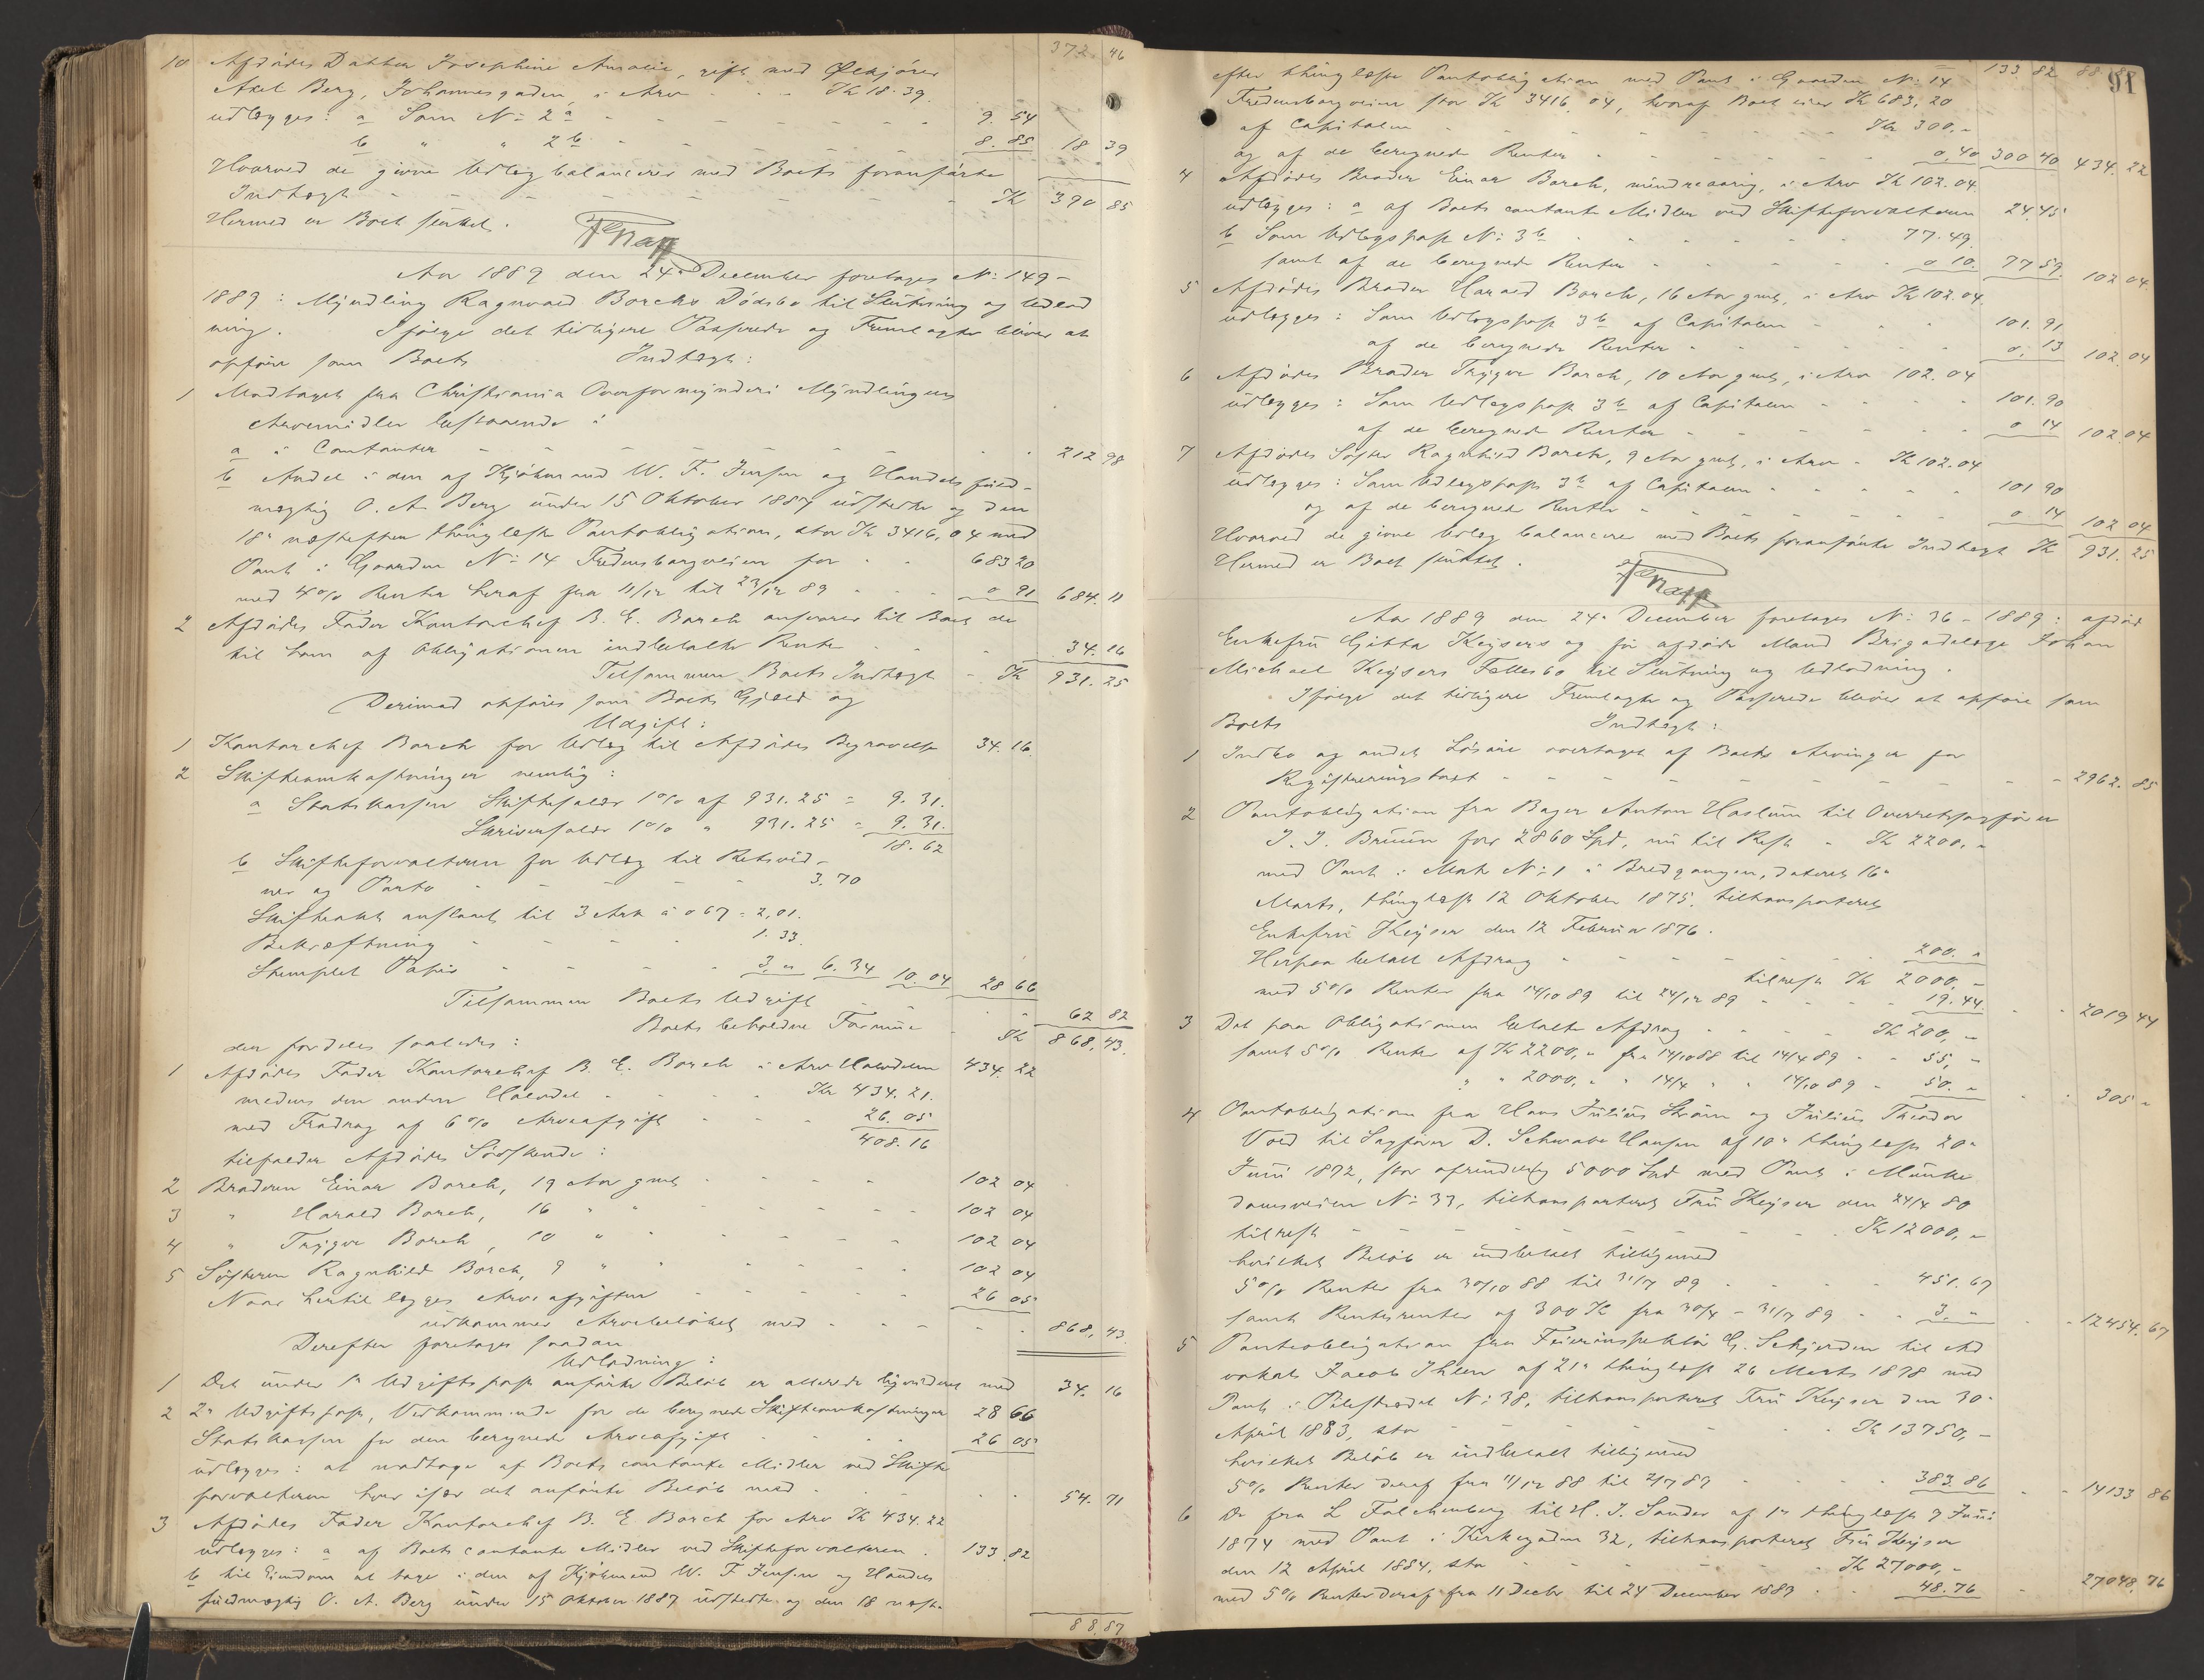 372. 46
10 Afdödes Datter Josephine Amalie, gift med Ølkjörer
Axel Berg, Johannesgaden, i Arv - - Kr 18.39.
udlægges: a Som No 2 a - - - 9. 54
b " " 2 b - - - 8. 85 18 39
Hvorved de givne Udlæg balancerer med Boets foranförte
Indtægt - - - Kr 390 85
Hermed er Boet sluttet.
Aar 1889 den 24de December foretoges No 149-
1889: Myndling Ragnvald Borchs Dödsbo til Slutning og Udlod
ning. Ifölge det tidligere Passerede og Fremlagte bliver at
opföre som Boets Indtægt:
1 Modtaget fra Christiania Overformynderi Myndlingens
Arvemidler bestaaende i
a i Contanter - - - 212 98
b Andel i den af Kjöbmand W. F. Jensen og Handelsfuld-
mægtig O. A. Berg under 15 Oktober 1887 udstedte og den
18de næstefter thinglæste Pantobligation, stor Kr 3416,04 med
Pant i Gaarden No 14 Fredensborgveien for - - 683 20
med 4% Renter heraf fra 11/12 til 23/12 89 - - - 0 91 684. 11
2 Afdödes Fader Kontorchef B. E. Borch ansvarer til Boet de
til ham af Obligationen indbetalte Renter - - - 34. 16
Tilsammen Boets Indtægt - Kr 931. 25
Derimod opföres som Boets Gjæld og
Udgift:
1 Kontorchef Borch for Udlæg til Afdödes Begravelse 34. 16.
2 Skifteomkostninger nemlig:
a Statskassen Skiftesalær 1% af 931.25 = 9. 31.
Skriversalær 1% " 931.25 = 9. 31.
18. 62
b Skifteforvalteren for Udlæg til Retsvid-
ner og Porto - - - 3. 70
Skifteakt anslaaet til 3 Ark à 0 67 = 2,01.
Bekræftning - - - 1. 33.
Stemplet Papir - - - 3. " 6. 34 10. 04 28 66
Tilsammen Boets Udgift - - 62 82
Boets beholdne Formue - Kr 868,43.
der fordeles saaledes:
1 Afdödes Fader Kontorchef B. E. Borch i Arv Halvdelen 434. 22
medens den anden Halvdel - - - Kr 434. 21.
med Fradrag af 6% Arveafgift - - - 26. 05
408. 16
tilfalder Afdödes Södskende:
2 Broderen Einar Borch, 19 Aar gml - - - 102 04
3 " Harald Borch, 16 " " - - - 102 04
4 " Trygve Borch, 10 " " - - - 102 04
5 Söstern Ragnhild Borch, 9 " " - - - 102 04
Naar hertil lægges Arveafgiften - - - 26 05
udkommer Arvebelöbet med - - - 868,43.
Derefter foretages saadan
Udlodning:
1 Det under 1ste Udgiftspost anförte Belöb er allerede ligvideret med 34. 16
2 2den Udgiftspost, Vedkommende for de beregnede Skifteomkostninger 28 66
Statskassen for den beregnede Arveafgift - - - 26 05
udlægges: at modtage af Boets contante Midler ved Skifte
forvalteren hver især det anförte Belöb med - - - 54. 71
3 Afdödes Fader Kontorchef B. E. Borch for Arv Kr 434.22
udlægges: a af Boets contante Midler ved Skifteforvalteren - 133. 82
b til Eiendom at tage i den af Kjöbmand W. F Jensen og Handels
fuldmægtig O. A. Berg under 15 Oktober 1887 udstedte og den 18 næst-
88.87
91
133. 82 88 87
efter thinglæste Pantobligation med Pant i Gaarden No 14
Fredensborgveien stor Kr 3416.04, hvoraf Boet eier Kr 683,20
af Capitalen - - - Kr 300,-
og af de beregnede Renter - - - 0,40 300 40 434. 22
4 Afdödes Broder Einar Borch, mindreaarig, i Arv Kr 102.04.
udlægges: a af Boets contante Midler ved Skifteforvalteren 24.45
b Som Udlægspost No 3 b - - - 77. 49.
samt af de beregnede Renter - - - 0 10. 77 59. 102 04.
5 Afdödes Broder Harald Borch, 16 Aar gml, i Arv Kr 102.04.
udlægges: Som Udlægspost 3 b af Capitalen - - - 101. 91
af de beregnede Renter - - - 0, 13 102. 04
6 Afdödes Broder Trygve Borch, 10 Aar gml, i Arv 102.04
udlægges: Som Udlægspost 3 b af Capitalen - - - 101. 90
af de beregnede Renter - - - 0 14 102. 04
7 Afdödes Söster Ragnhild Borch, 9 Aar gml, i Arv - Kr 102.04
udlægges: Som Udlægspost 3 b af Capitalen - - - 101 90
og af de beregnede Renter - - - 0 14 102 04
Hvorved de givne Udlæg balancerer med Boets foranförte Indtægt Kr 931. 25
Hermed er Boet sluttet.
Aar 1889 den 24de December foretoges No 36-1889: afdöde
Enkefru Gitta Keysers og för afdöde Mand Brigadelæge Johan
Michael Keysers Fællesbo til Slutning og Udlodning.
Ifölge det tidligere Fremlagte og Passerede bliver at opföre som
Boets Indtægt:
1 Indbo og andet Lösöre overtaget af Boets Arvinger for
Registreringstaxt - - - 2962. 85
2 Pantobligation fra Bager Anton Haslum til Overretssagförer
J. J. Bruun for 2860 Spd, nu til Rest - Kr 2200,-
med Pant i Matr No 1 i Bredgangen, dateret 16de
Marts, thinglæst 12 Oktober 1875, transporteret
Enkefru Keyser den 12 Februar 1876.
Herpaa betalt Afdrag - - - 200. "
tilrest Kr 2000,-
med 5% Renter fra 14/10 89 til 24/12 89 - - - 19. 44. 2019 44
3 Det paa Obligationen betalte Afdrag - - - Kr 200,-
samt 5% Renter af Kr 2200," fra 14/10 88 til 14/4 89 - - 55,-
" " 2000," " 14/4 " " 14/10 89 - 50. " 305 "
4 Pantobligation fra Hans Julius Ström og Julius Theodor
Vold til Sagförer D. Schwabe Hansen af 10de thinglæst 20de
Juni 1872, stor oprindelig 5000 Spd med Pant i Munke
damsveien No 33, transporteret Fru Keyser den 24/4 80
tilrest - - - Kr 12000,-
hvilket Belöb er indbetalt tilligemed
5% Renter fra 30/10 88 til 31/7 89 - - - 451. 67
samt Rentesrenter af 300 Kr fra 30/4 - 31/7 89 - - 3. " 12454. 67
5 Pantobligation fra Feierinspektör G. Schjerden til Ad
vokat Jacob Ihlen af 21de thinglæst 26 Marts 1878 med
Pant i Pilestrædet No 38, transporteret Fru Keyser den 30
April 1883, stor - - - Kr 13750,-
hvilket Belöb er indbetalt tilligemed
5% Renter deraf fra 11/12 88 til 2/7 89 - - - 383. 86 14133 86
6 Do fra L Falchenberg til H. J. Sander af 1ste thinglæst 7 Juni
1874 med Pant i Kirkegaden 32, transporteret Fru Keyser
den 12 April 1884, stor - - - Kr 27000,-
med 5% Renter deraf fra 11 Decbr til 24 December 1889 - - 48.76 27048,76